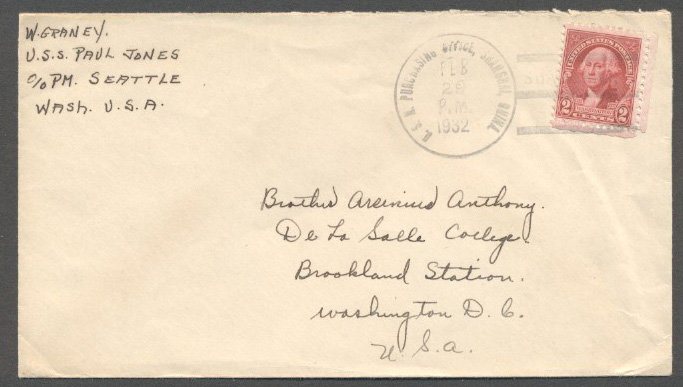 W. GRANEY.
U.S.S. PAUL JONES
C/O PM. SEATTLE
WASH. U.S.A.
U.S.N. PURCHASING OFFICE, SHANGHAI, CHINA.
FEB
29
P.M.
1932
UNITED STATES POSTAGE
WASHINGTON
2 CENTS 2
Brother Arsinius Anthony.
De La Salle College.
Brookland Station.
Washington D. C.
U. S. A.